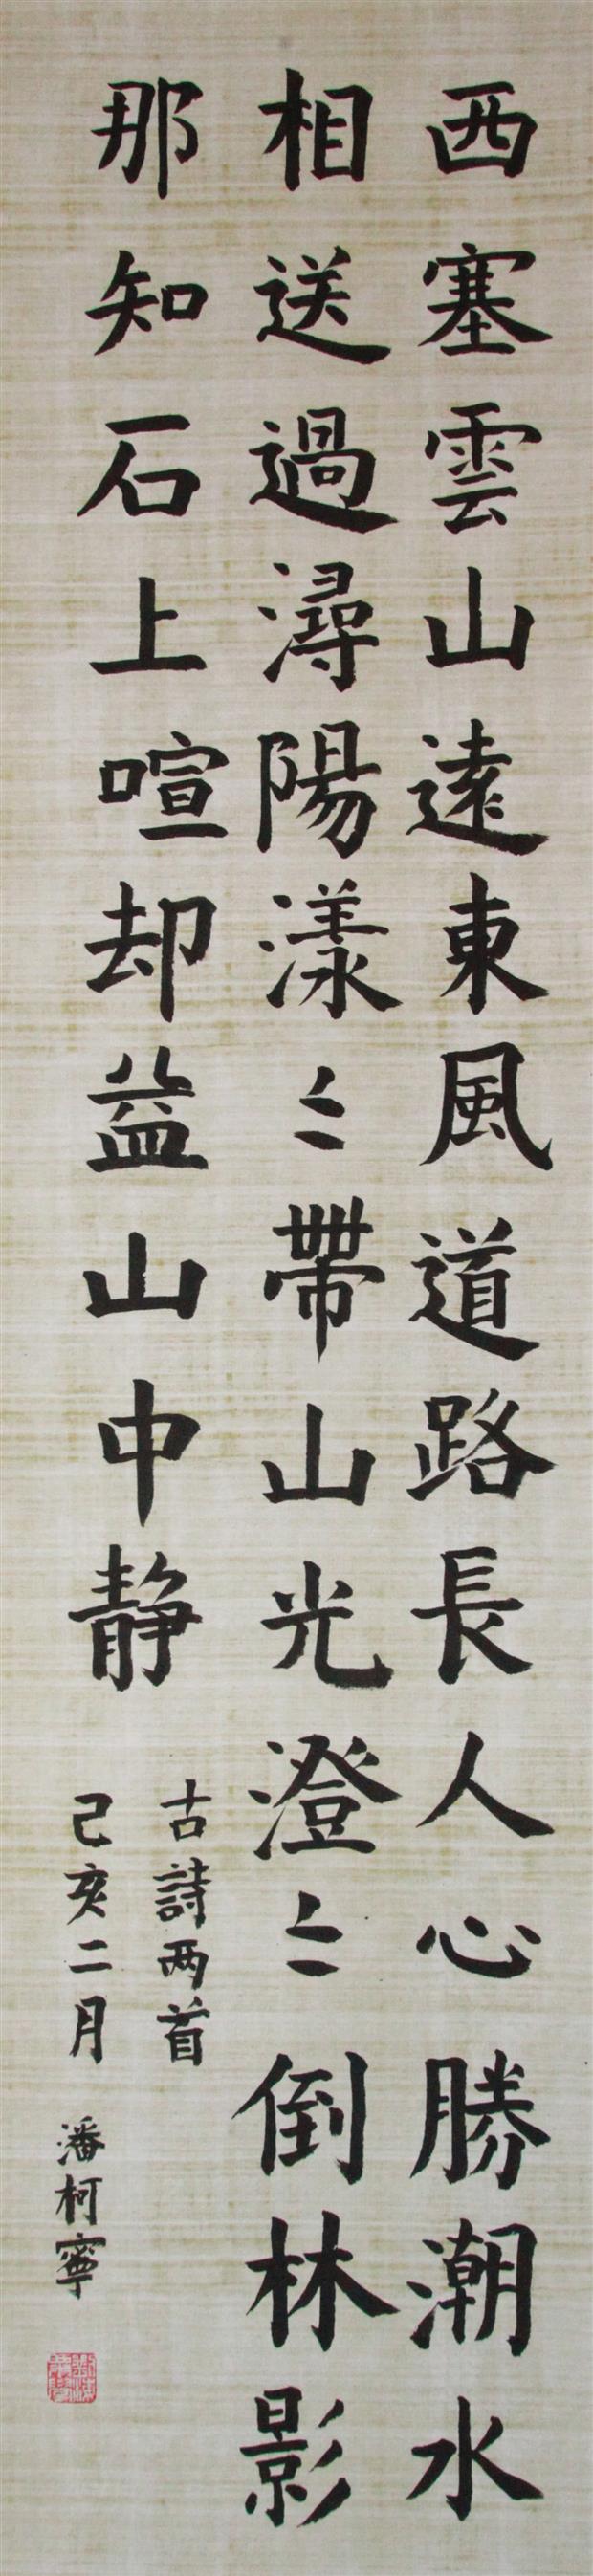 西塞雲山遠東風道路長人心勝潮水
相送過潯陽漾〻帶山光澄〻倒林影
那知石上喧却益山中静
古詩两首
己亥二月 潘柯寧